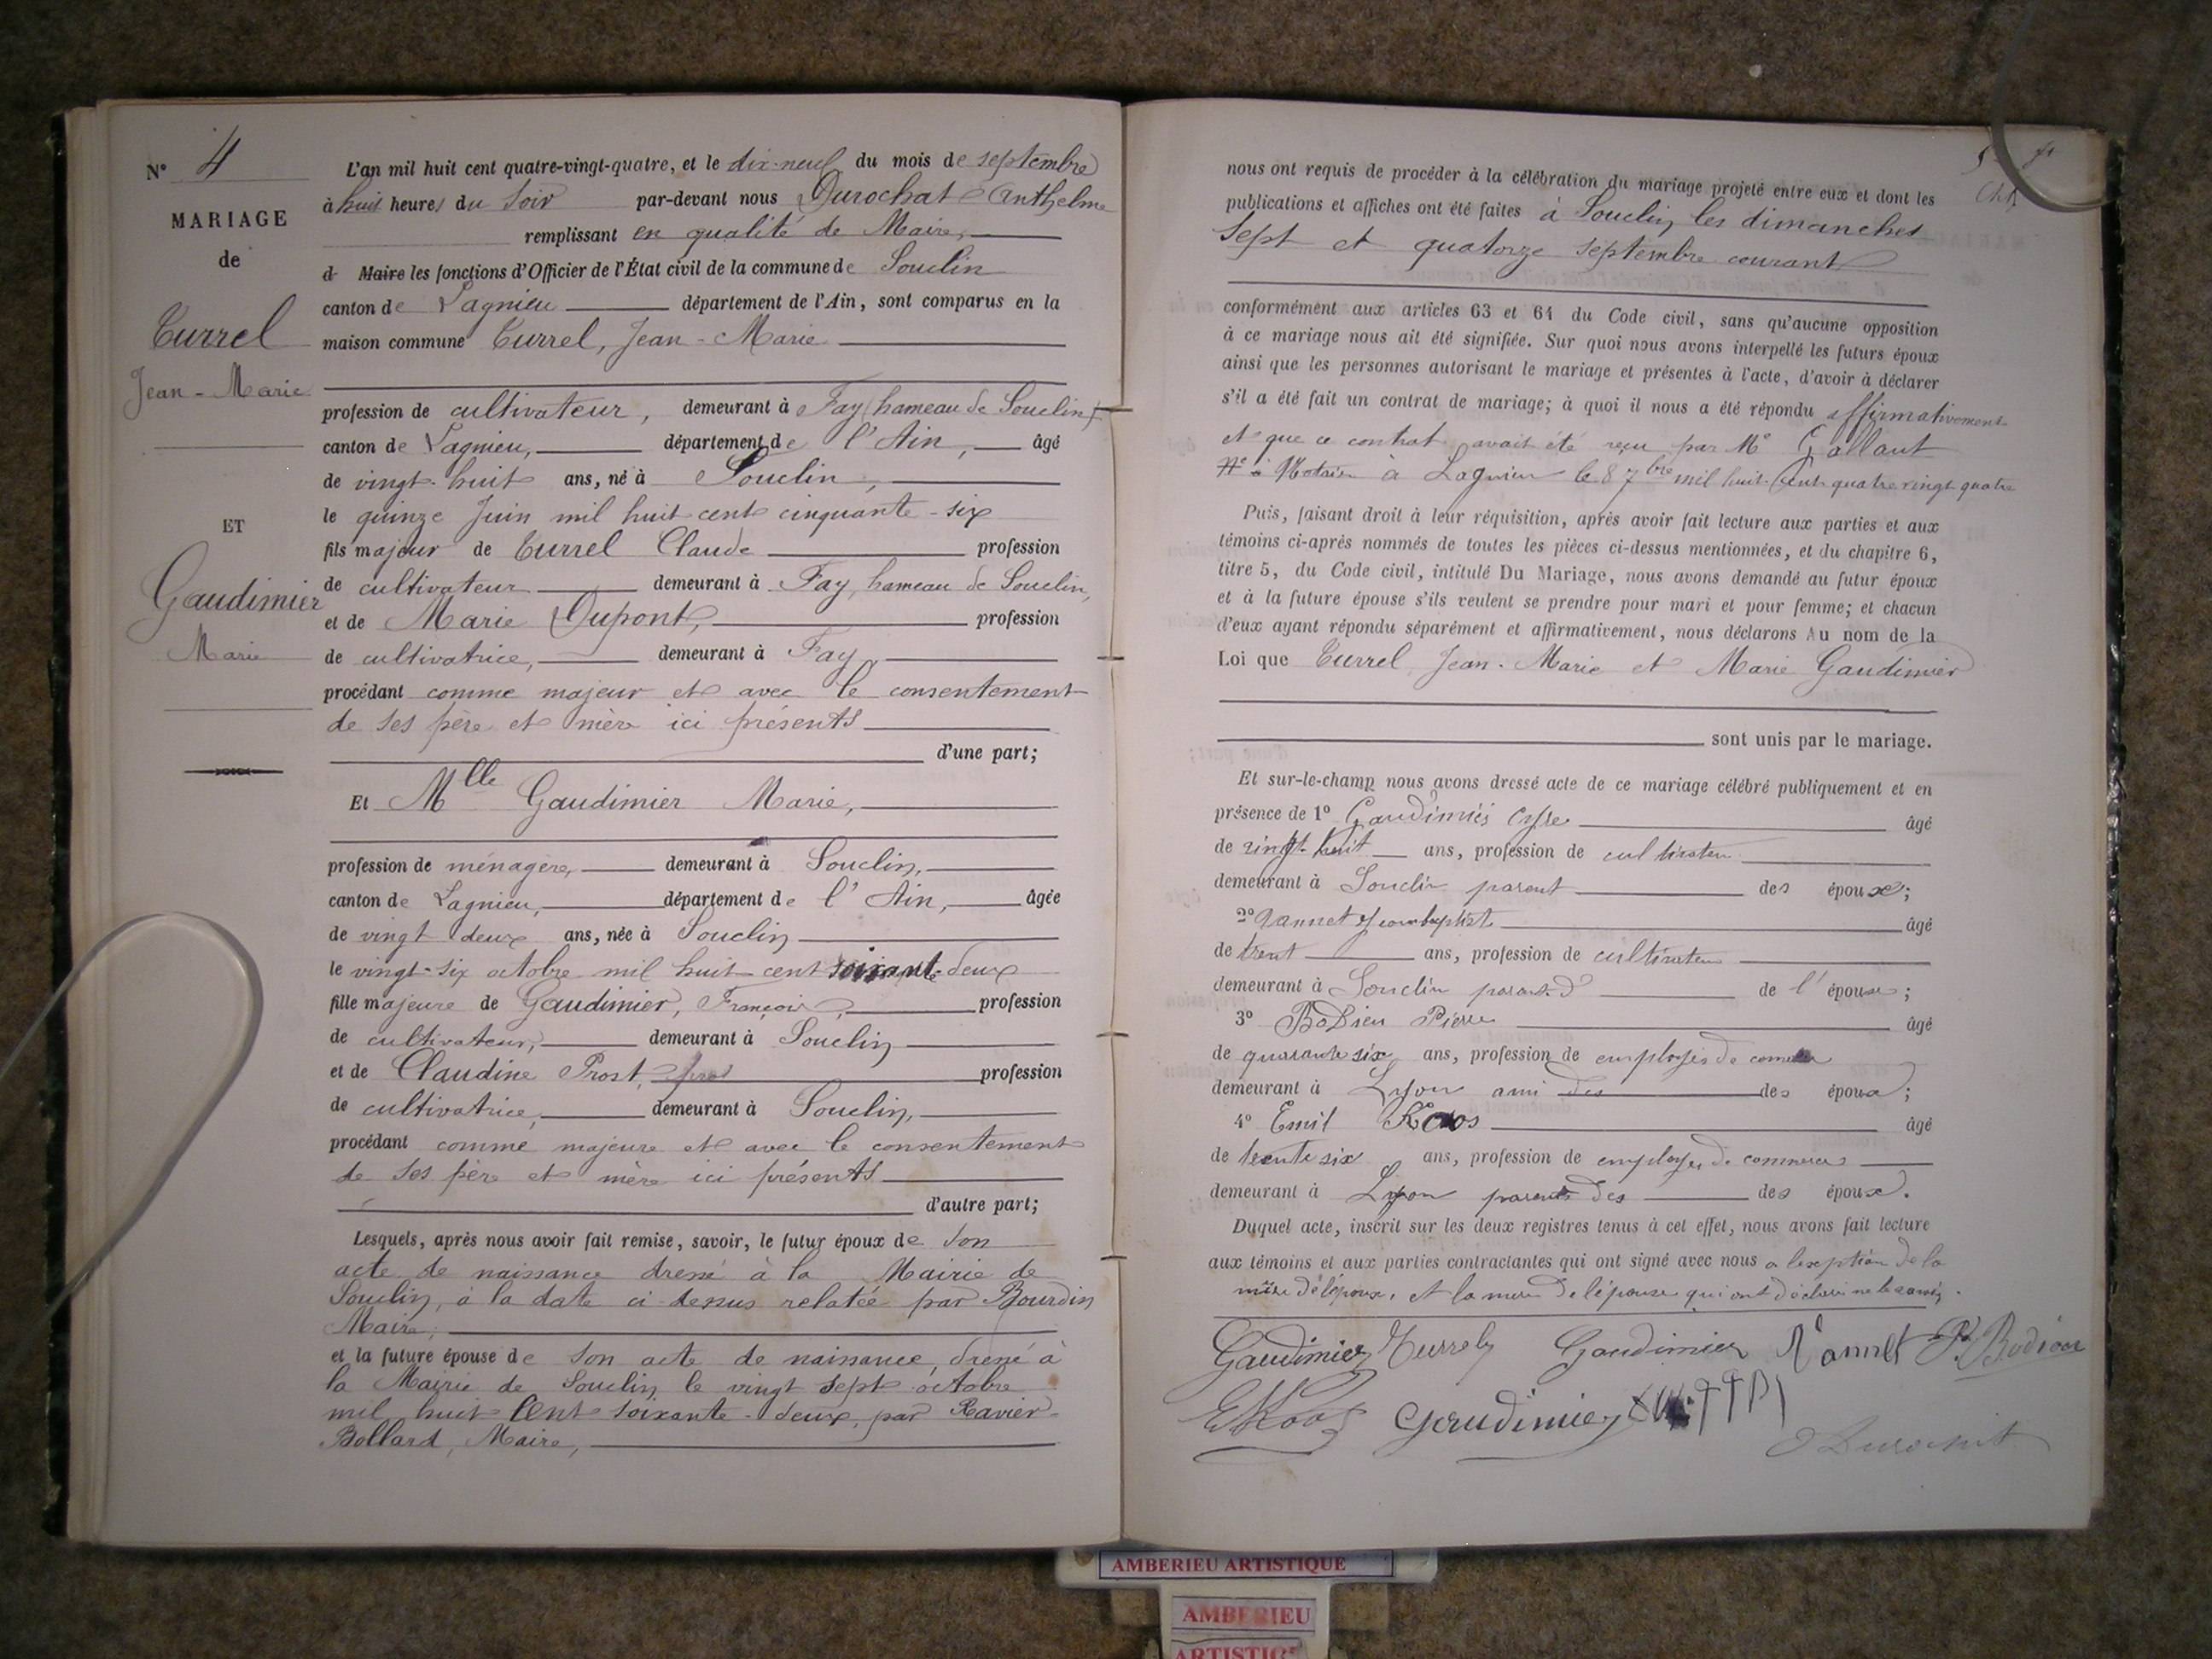 N° 4
MARIAGE
de
Turrel
Jean-Marie
ET
Gaudimier
Marie
L'an mil huit cent quatre-vingt-quatre, et le dix-neuf du mois de septembre
à huit heures du soir par-devant nous Durochat Anthelme
remplissant en qualité de Maire,
d Maire les fonctions d'Officier de l'État civil de la commune de Souclin
canton de Lagnieu département de l'Ain, sont comparus en la
maison commune Turrel, Jean-Marie
profession de cultivateur, demeurant à Fay (hameau de Souclin)
canton de Lagnieu, département de l'Ain, âgé
de vingt-huit ans, né à Souclin,
le quinze Juin mil huit cent cinquante-six
fils majeur de Turrel Claude profession
de cultivateur demeurant à Fay, hameau de Souclin,
et de Marie Dupont, profession
de cultivatrice, demeurant à Fay,
procédant comme majeur et avec le consentement
de ses père et mère ici présents
d'une part;
Et Mlle Gaudimier Marie,
profession de ménagère, demeurant à Souclin,
canton de Lagnieu, département de l'Ain, âgée
de vingt deux ans, née à Souclin
le vingt-six octobre mil huit cent soixante-deux
fille majeure de Gaudimier, François, profession
de cultivateur, demeurant à Souclin
et de Claudine Prost, profession
de cultivatrice, demeurant à Souclin,
procédant comme majeure et avec le consentement
de ses père et mère ici présents
d'autre part;
Lesquels, après nous avoir fait remise, savoir, le futur époux de son
acte de naissance dressé à la Mairie de
Souclin, à la date ci-dessus relatée par Bourdin
Maire,
et la future épouse de son acte de naissance, dressé à
la Mairie de Souclin le vingt sept octobre
mil huit cent soixante-deux, par Ravier-
Bollard, Maire,
nous ont requis de procéder à la célébration du mariage projeté entre eux et dont les
publications et affiches ont été faites à Souclin les dimanches
sept et quatorze septembre courant
conformément aux articles 63 et 64 du Code civil, sans qu'aucune opposition
à ce mariage nous ait été signifiée. Sur quoi nous avons interpellé les futurs époux
ainsi que les personnes autorisant le mariage et présentes à l'acte, d'avoir à déclarer
s'il a été fait un contrat de mariage; à quoi il nous a été répondu affirmativement
et que ce contrat avait été reçu par Me Gallaut
Notaire à Lagnieu le 8 7bre mil huit cent quatre vingt quatre
Puis, faisant droit à leur réquisition, après avoir fait lecture aux parties et aux
témoins ci-après nommés de toutes les pièces ci-dessus mentionnées, et du chapitre 6,
titre 5, du Code civil, intitulé Du Mariage, nous avons demandé au futur époux
et à la future épouse s'ils veulent se prendre pour mari et pour femme; et chacun
d'eux ayant répondu séparément et affirmativement, nous déclarons Au nom de la
Loi que Turrel, Jean-Marie et Marie Gaudimier
sont unis par le mariage.
Et sur-le-champ nous avons dressé acte de ce mariage célébré publiquement et en
présence de 1° Gaudimier âgé
de vingt-huit ans, profession de cultivateur
demeurant à Souclin parent des époux;
2° âgé
de trent ans, profession de cultivateur
demeurant à Souclin parent d de l'épouse;
3° Bodieu Pierre âgé
de quarante six ans, profession de employés de
demeurant à Lyon ami des des époux;
4° Emil Koos âgé
de trente six ans, profession de employer de commerce
demeurant à Lyon parents des des époux.
Duquel acte, inscrit sur les deux registres tenus à cet effet, nous avons fait lecture
aux témoins et aux parties contractantes qui ont signé avec nous a lexception de la
mère de lépoux, et la mère de l'épouse qui ont déclaré ne le savoir.
Gaudimier Turrel Gaudimier Rannet P. Bodieu
E Koos Gaudimier
Durochat
AMBERIEU ARTISTIQUE
AMBERIEU